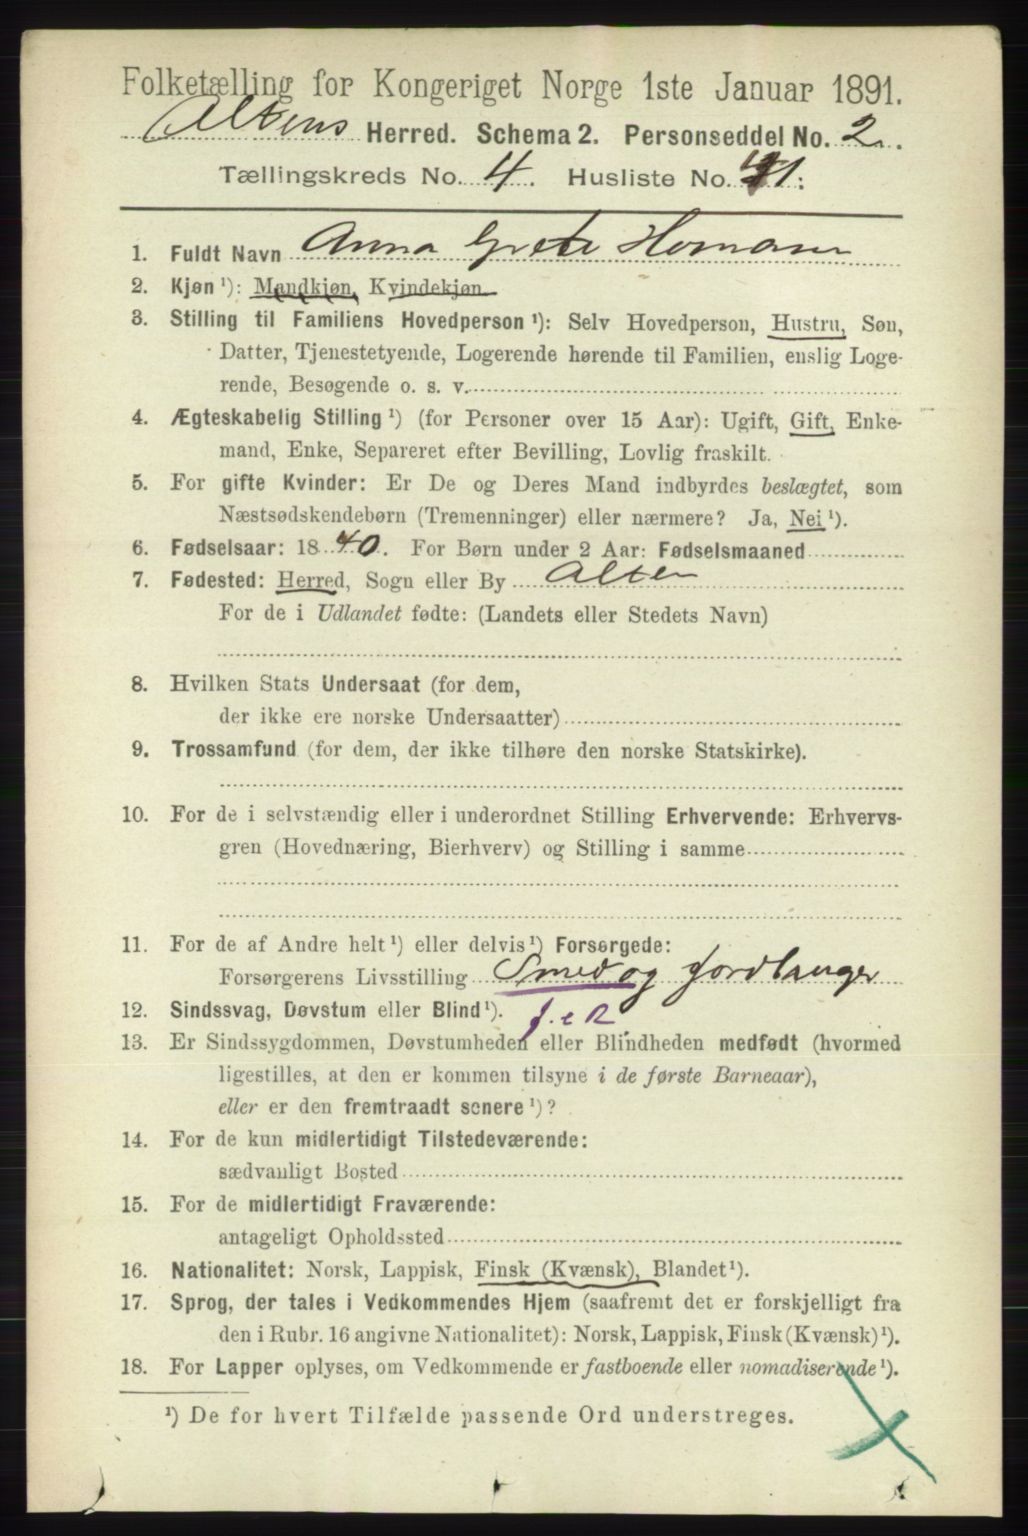 Folketælling for Kongeriget Norge 1ste Januar 1891.
Altens Herred. Schema 2. Personseddel No. 2.
Tællingskreds No. 4. Husliste No. 41:
1. Fuldt Navn Anna Grete Hermansn
2. Kjøn ¹): Mandkjøn, Kvindekjøn.
3. Stilling til Familiens Hovedperson ¹): Selv Hovedperson, Hustru, Søn,
Datter, Tjenestetyende, Logerende hørende til Familien, enslig Loge-
rende, Besøgende o. s. v.
4. Ægteskabelig Stilling ¹) (for Personer over 15 Aar): Ugift, Gift, Enke-
mand, Enke, Separeret efter Bevilling, Lovlig fraskilt.
5. For gifte Kvinder: Er De og Deres Mand indbyrdes beslægtet, som
Næstsødskendebørn (Tremenninger) eller nærmere? Ja, Nei ¹).
6. Fødselsaar: 1840. For Børn under 2 Aar: Fødselsmaaned
7. Fødested: Herred, Sogn eller By Alten
For de i Udlandet fødte: (Landets eller Stedets Navn)
8. Hvilken Stats Undersaat (for dem,
der ikke ere norske Undersaatter)
9. Trossamfund (for dem, der ikke tilhøre den norske Statskirke).
10. For de i selvstændig eller i underordnet Stilling Erhvervende: Erhvervs-
gren (Hovednæring, Bierhverv) og Stilling i samme
11. For de af Andre helt ¹) eller delvis ¹) Forsørgede:
Forsørgerens Livsstilling Smed og jordbruger
12. Sindssvag, Døvstum eller Blind ¹).
13. Er Sindssygdommen, Døvstumheden eller Blindheden medfødt (hvormed
ligestilles, at den er kommen tilsyne i de første Barneaar),
eller er den fremtraadt senere ¹)?
14. For de kun midlertidigt Tilstedeværende:
sædvanligt Bosted
15. For de midlertidigt Fraværende:
antageligt Opholdssted
16. Nationalitet: Norsk, Lappisk, Finsk (Kvænsk), Blandet ¹).
17. Sprog, der tales i Vedkommendes Hjem (saafremt det er forskjelligt fra
den i Rubr. 16 angivne Nationalitet): Norsk, Lappisk, Finsk (Kvænsk) ¹).
18. For Lapper oplyses, om Vedkommende er fastboende eller nomadiserende ¹).
¹) De for hvert Tilfælde passende Ord understreges.